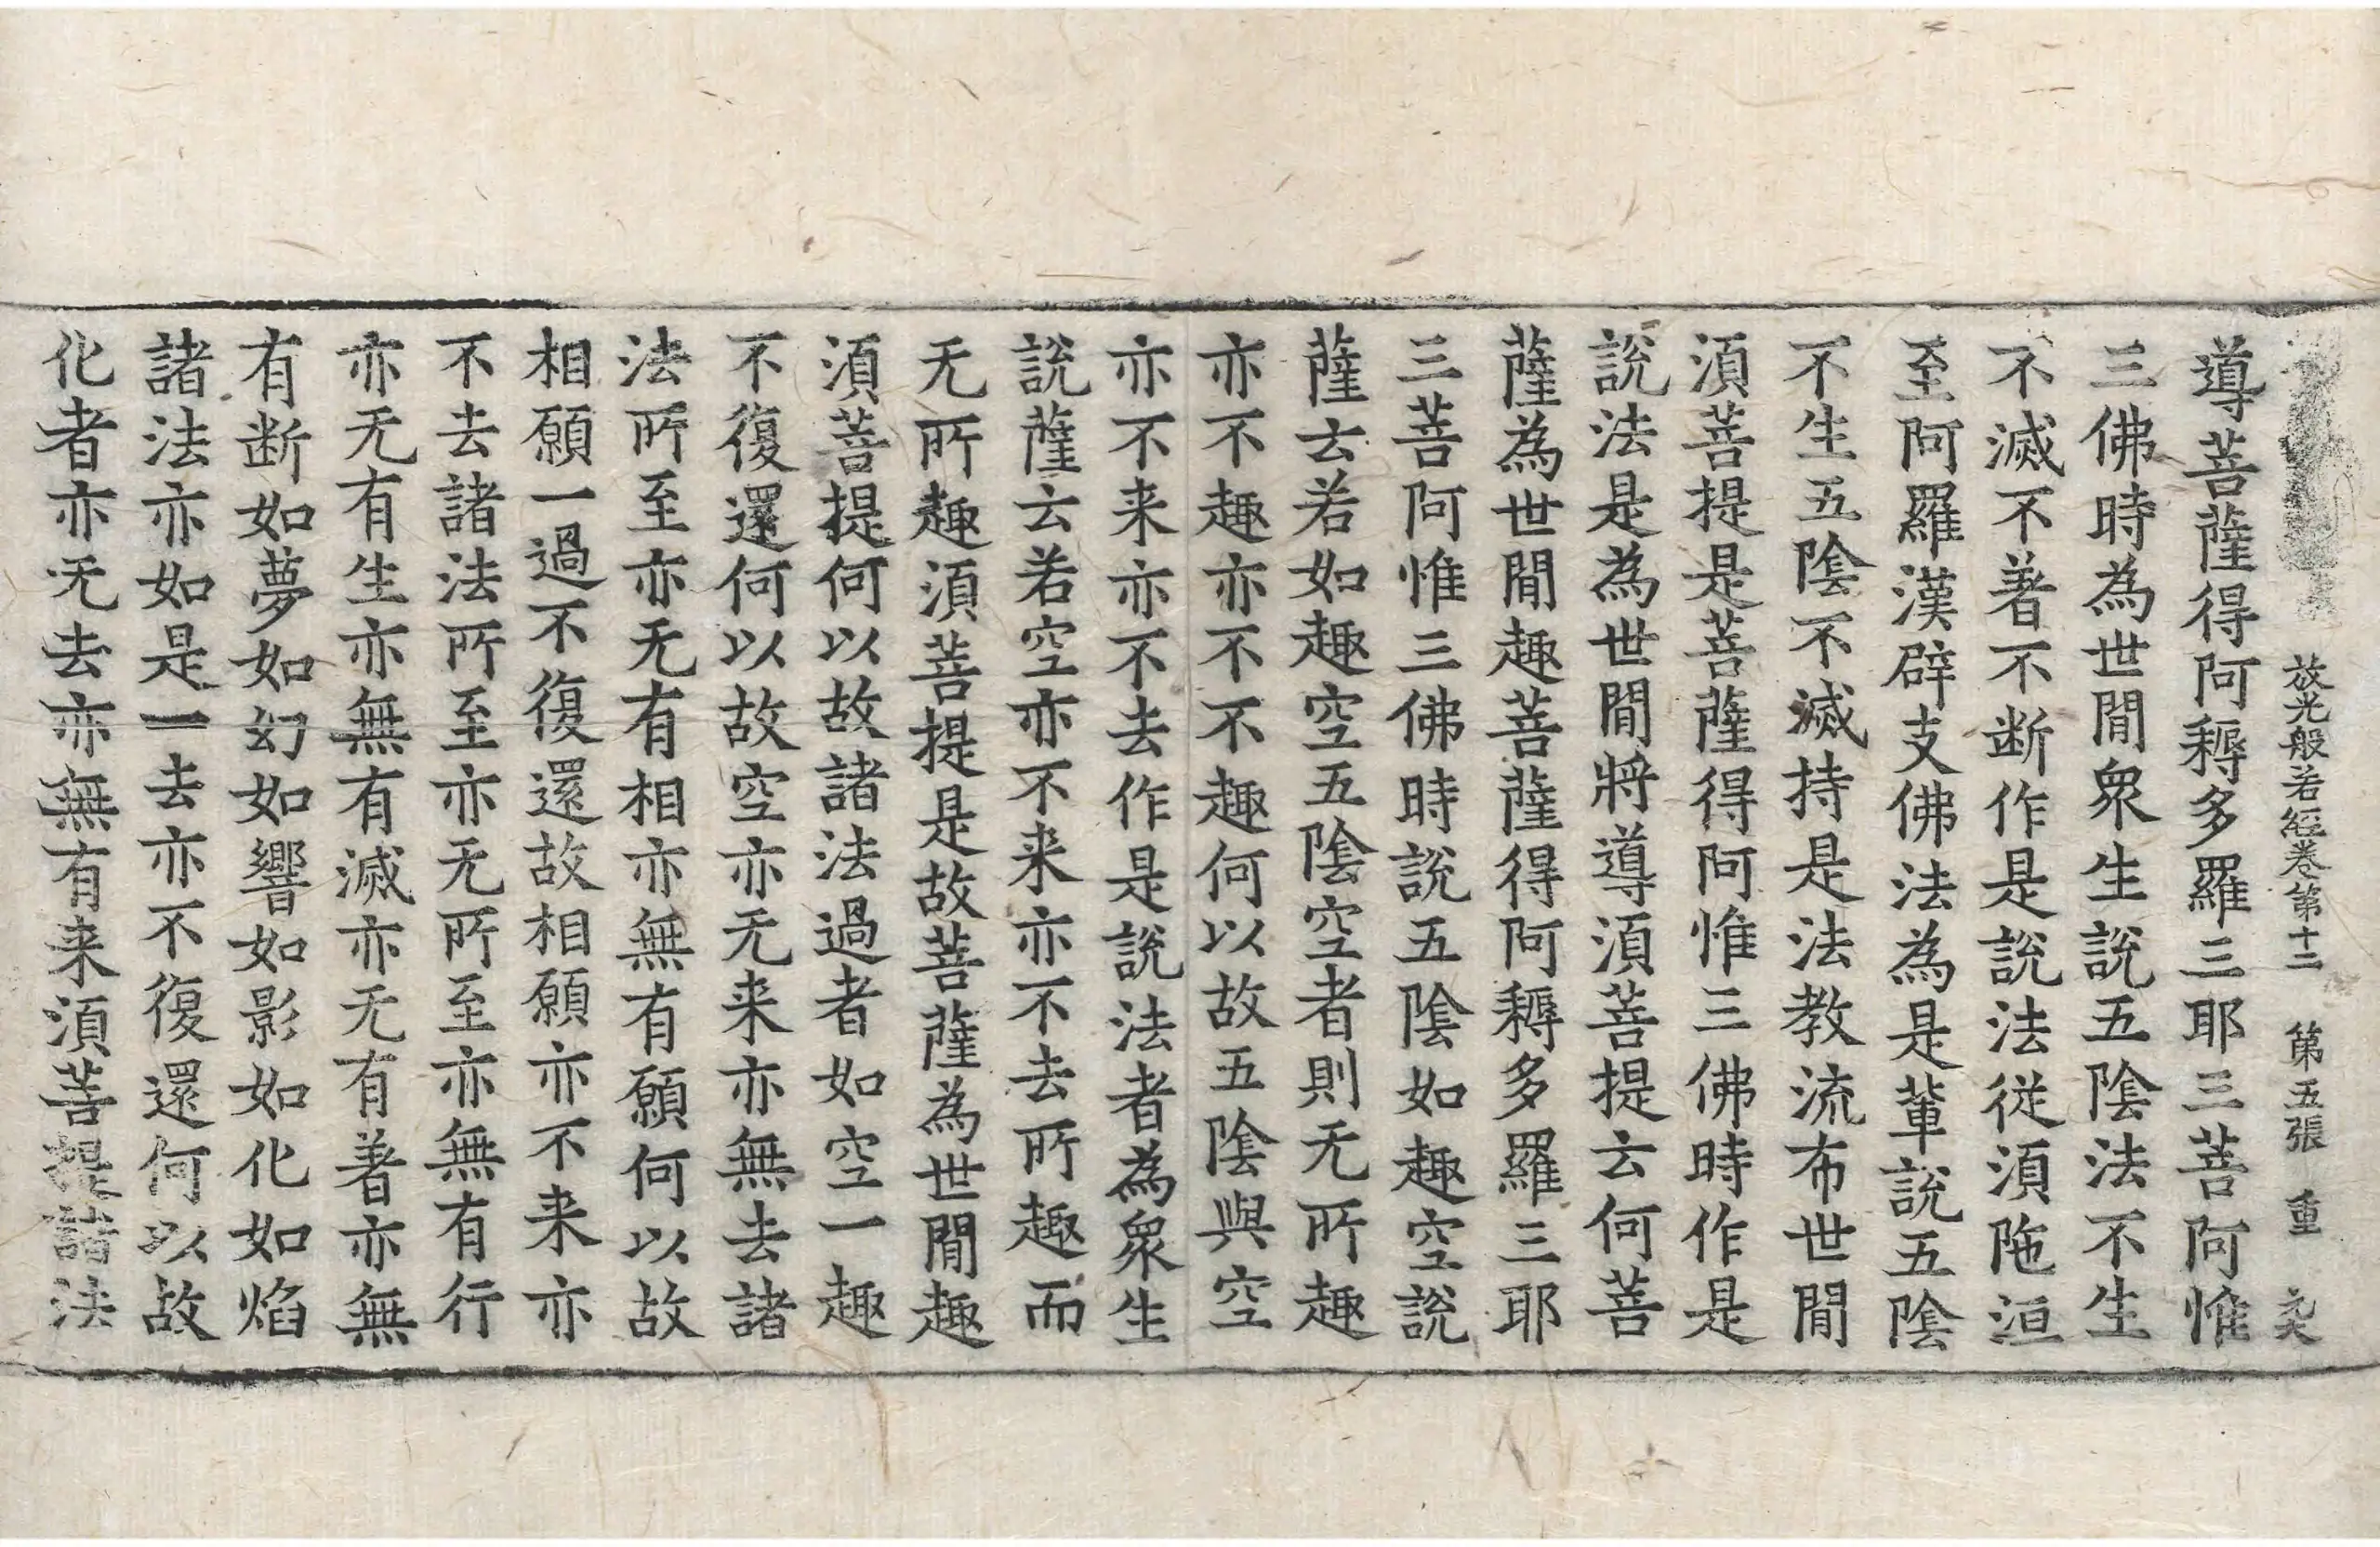 放光般若經卷第十二 第五張 重
導菩薩得阿耨多羅三耶三菩阿惟
三佛時為世間衆生說五陰法不生
不滅不著不断作是說法從湏陁洹
至阿羅漢辟支佛法為是軰說五陰
不生五陰不滅持是法教流布世間
湏菩提是菩薩得阿惟三佛時作是
說法是為世間將導湏菩提云何菩
薩為世間趣菩薩得阿耨多羅三耶
三菩阿惟三佛時說五陰如趣空說
薩云若如趣空五陰空者則无所趣
亦不趣亦不不趣何以故五陰與空
亦不来亦不去作是說法者為衆生
說薩云若空亦不来亦不去所趣而
无所趣湏菩提是故菩薩為世間趣
湏菩提何以故諸法過者如空一趣
不復還何以故空亦无来亦無去諸
法所至亦无有相亦無有願何以故
相願一過不復還故相願亦不来亦
不去諸法所至亦无所至亦無有行
亦无有生亦無有滅亦无有著亦無
有断如夢如幻如響如影如化如焰
諸法亦如是一去亦不復還何以故
化者亦无去亦無有来湏菩提諸法